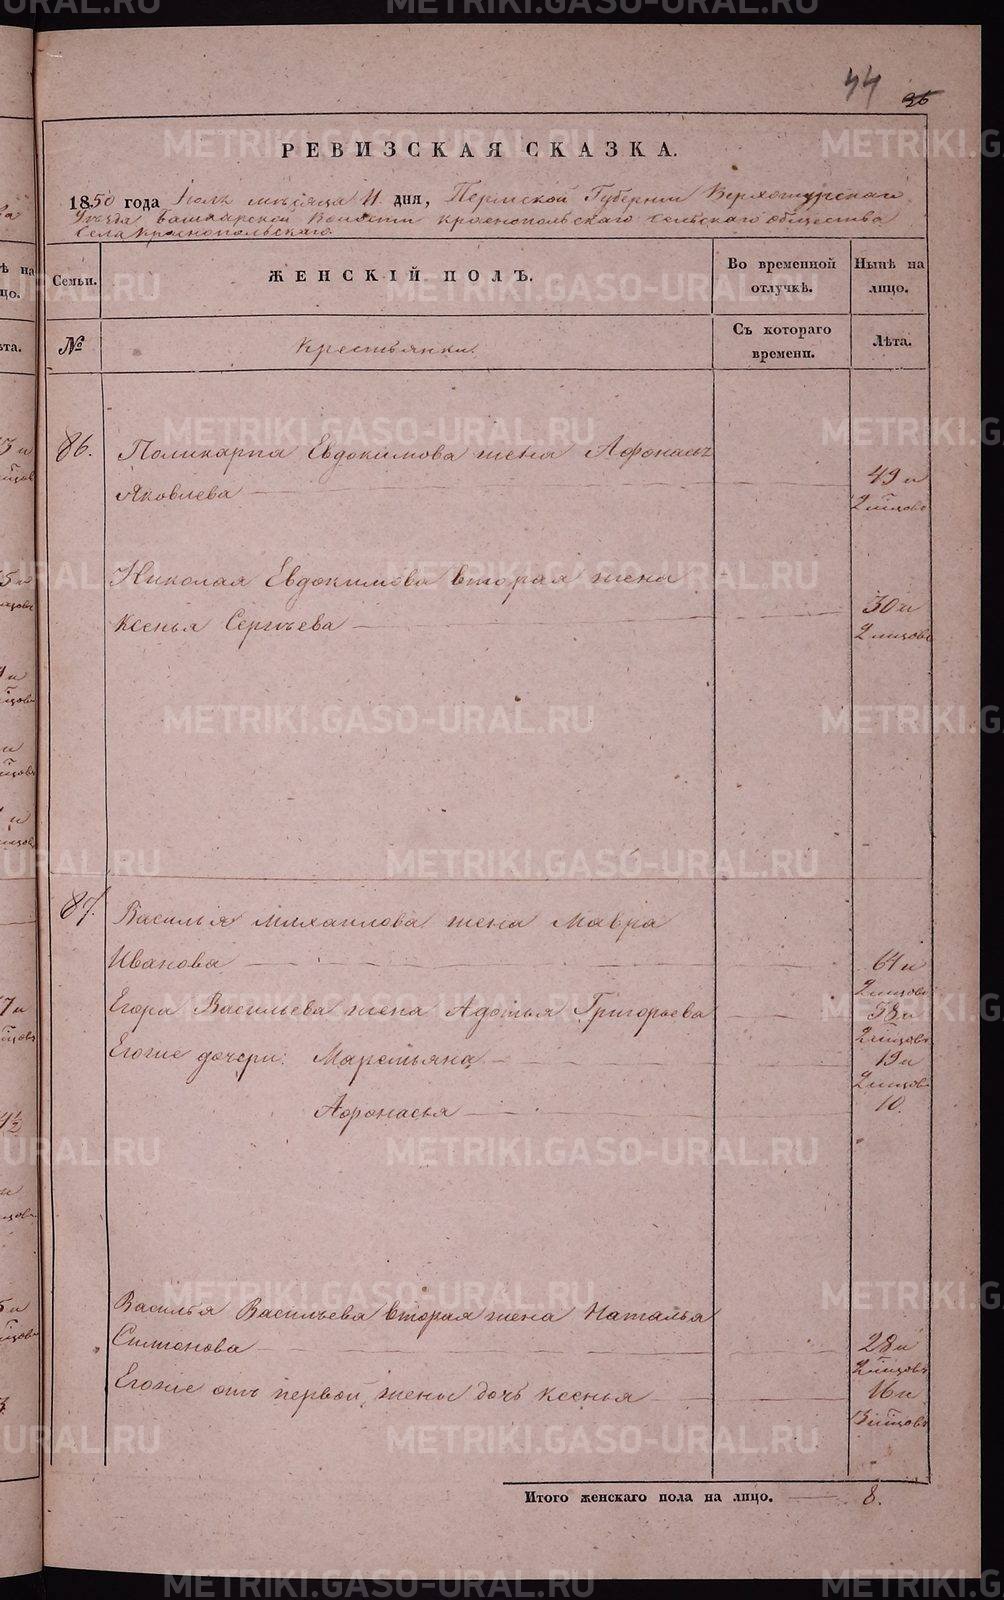 44 36
РЕВИЗСКАЯ СКАЗКА.
1850 года Іюля мѣсяца 11 дня, Пермской Губерніи Верхотурскаго
Уѣзда башкарской Волости краснопольскаго сельскаго общества
Села Краснопольскаго
Семьи. ЖЕНСКІЙ ПОЛЪ. Во временной отлучкѣ. Нынѣ на лицо.
№ Крестьянки. Съ котораго времени. Лѣта.
86. Поликарпа Евдокимова жена Афонасья
Яковлева 49 и
2 мѣсяцовъ
Николая Евдокимова вторая жена
Ксенья Сергѣева 30 и
2 мѣсяцовъ
87. Василья Михайлова жена Мавра
Иванова 61 и
2 мѣсяцовъ
Егора Васильева жена Адотья Григорьева 38 и
2 мѣсяцовъ
Егоже дочери: Маремьяна 19 и
2 мѣсяцовъ
Афонасья 10.
Василья Васильева вторая жена Наталья
Симонова 28 и
2 мѣсяцовъ
Егоже отъ первой жены дочь Ксенья 16 и
3 мѣсяцовъ
Итого женскаго пола на лицо. 8.
METRIKI.GASO-URAL.RU